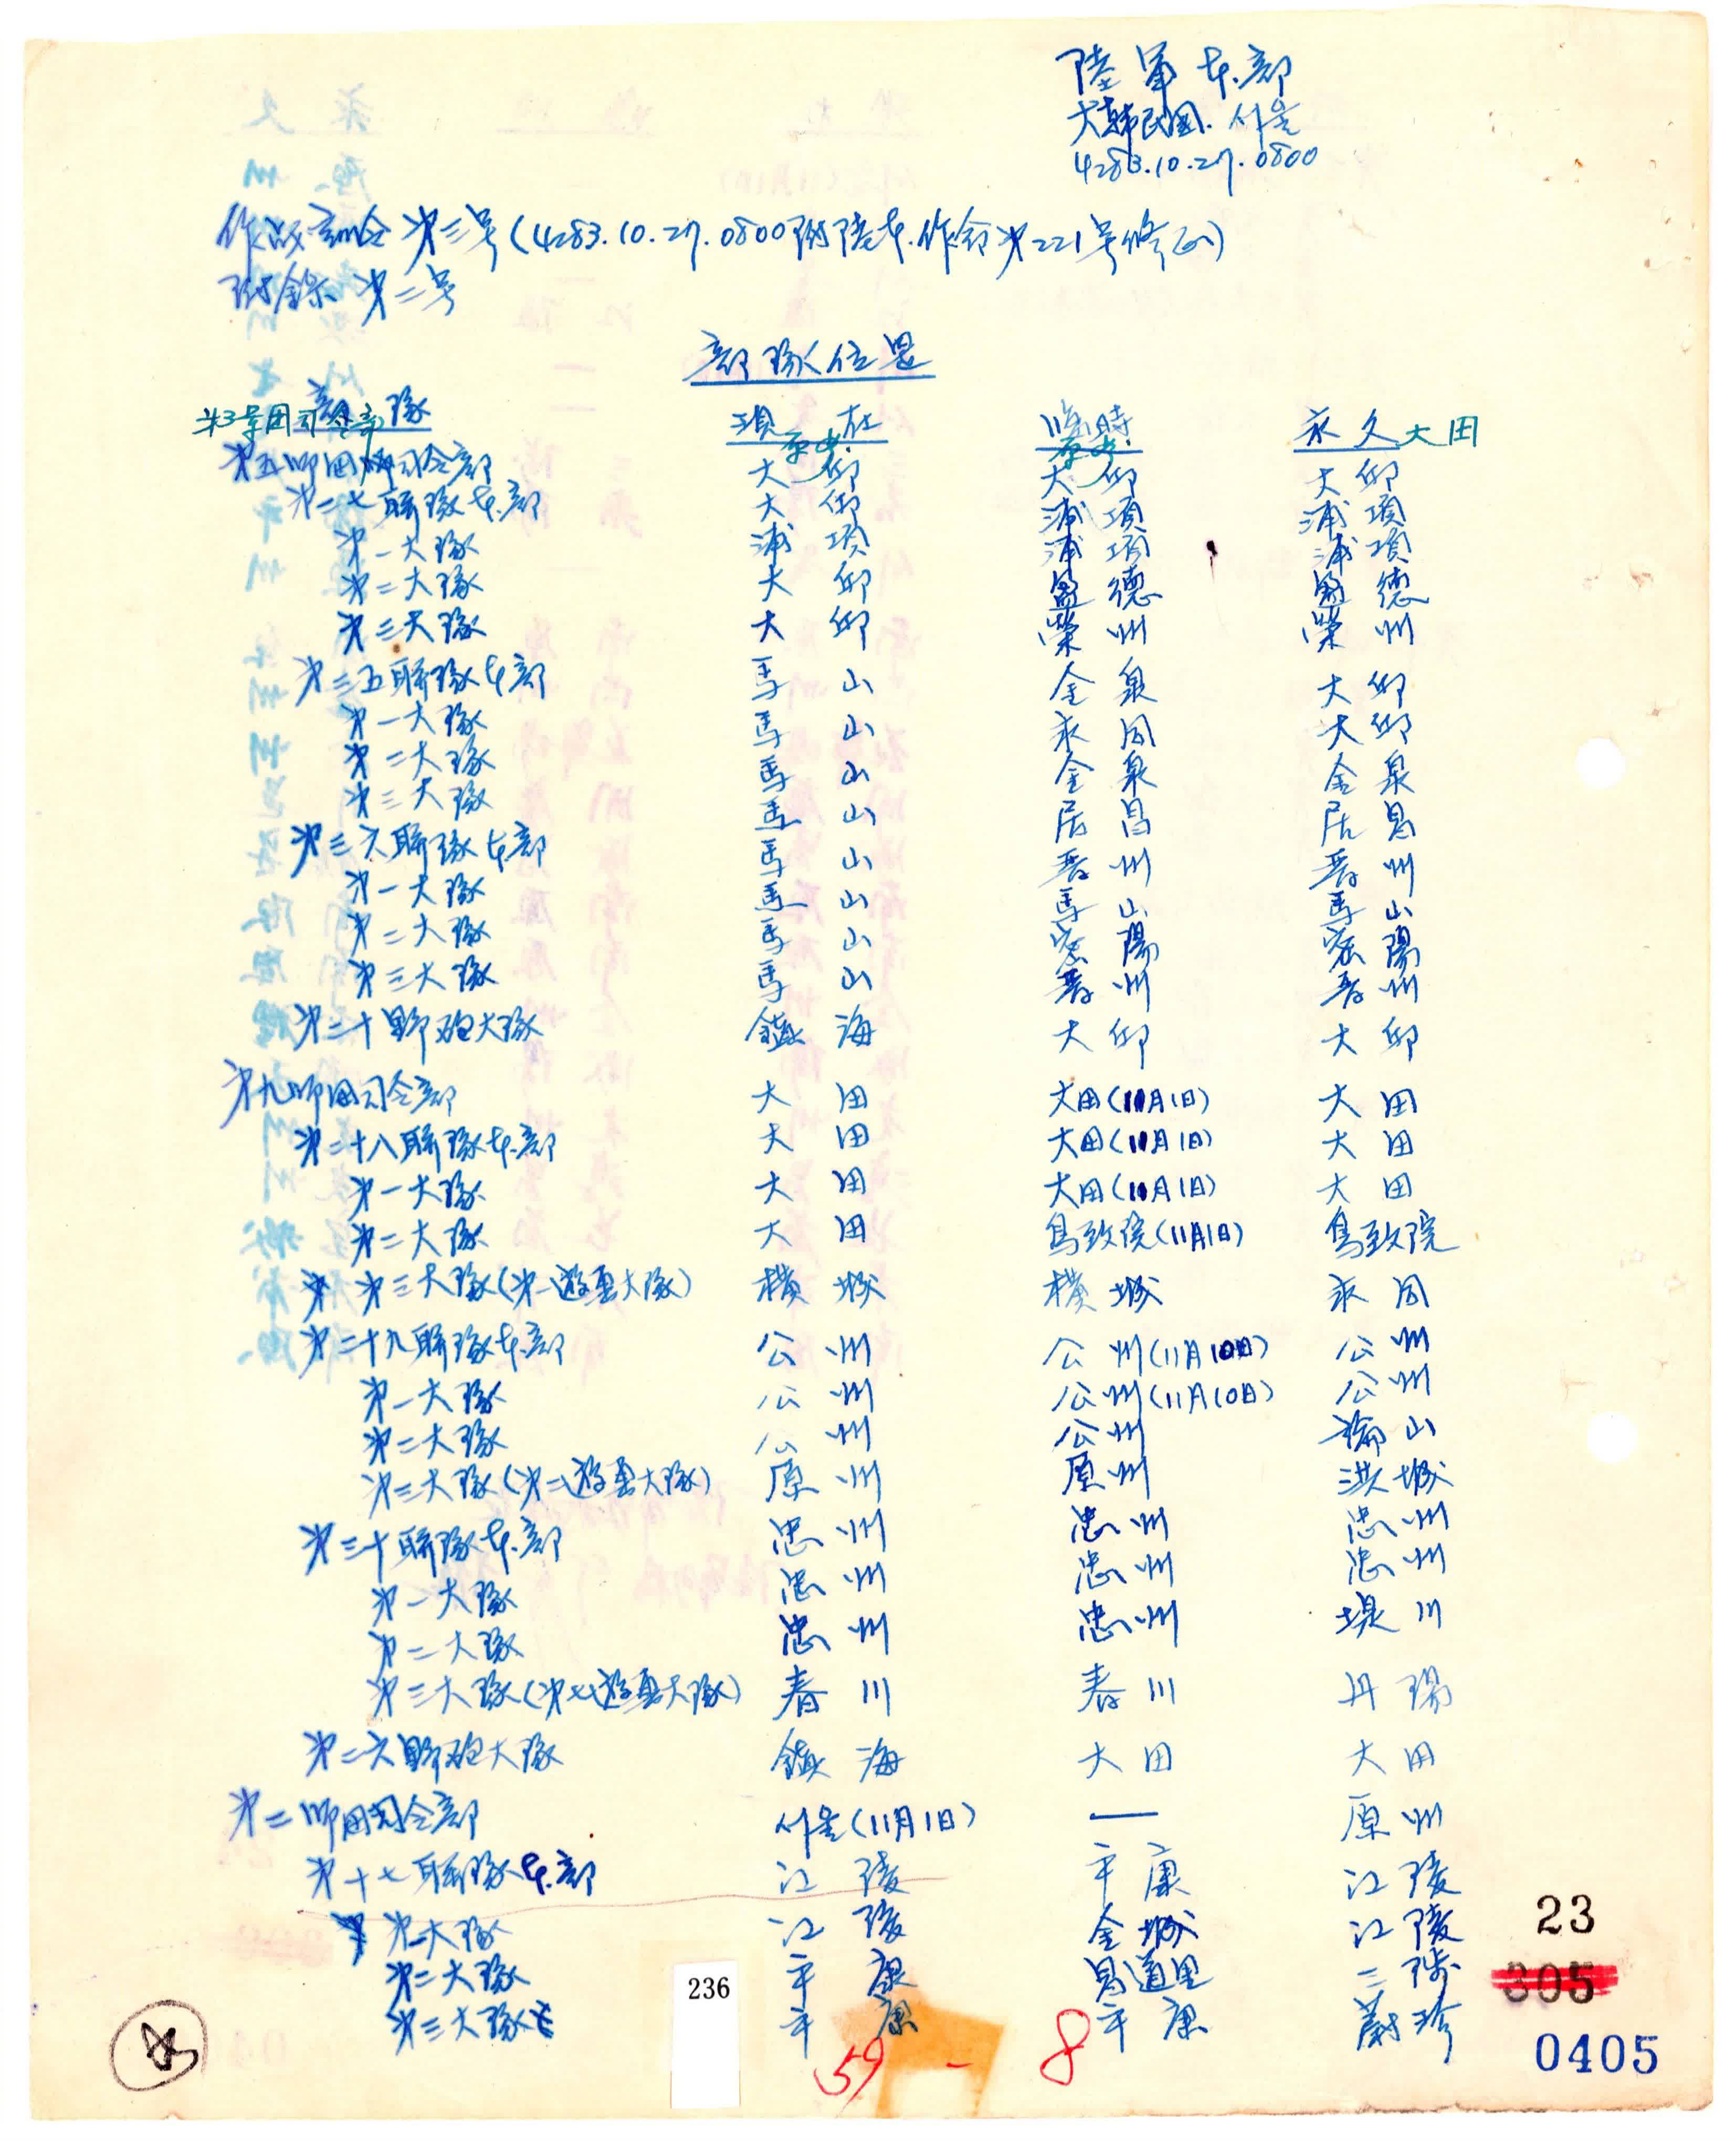 陸軍本部
大韓民國. 서울
4283.10.27.0800
作戰訓令第三号(4283.10.27.0800附陸本.作命第221号修正)
附錄 第二号
部隊位置
部隊 現在 臨時 永久
第3军团司令部 大田
第五師団司令部 大邱 大邱 大邱
第二七聯隊本部 大邱 浦項 浦項
第一大隊 浦項 浦項 浦項
第二大隊 大邱 盈德 盈德
第三大隊 大邱 榮州 榮州
第三五聯隊本部 馬山 金泉 大邱
第一大隊 馬山 永同 大邱
第二大隊 馬山 金泉 金泉
第三大隊 馬山 居昌 居昌
第三六聯隊本部 馬山 晋州 晋州
第一大隊 馬山 馬山 馬山
第二大隊 馬山 密陽 密陽
第三大隊 馬山 晋州 晋州
第二十野砲大隊 鎮海 大邱 大邱
第九師団司令部 大田 大田(11月1日) 大田
第二十八聯隊本部 大田 大田(11月1日) 大田
第一大隊 大田 大田(11月1日) 大田
第二大隊 大田 鳥致院(11月1日) 鳥致院
第三大隊(第一遊擊大隊) 橫城 橫城 永同
第二十九聯隊本部 公州 公州(11月10日) 公州
第一大隊 公州 公州(11月10日) 公州
第二大隊 公州 公州 論山
第三大隊(第二遊擊大隊) 原州 原州 洪城
第三十聯隊本部 忠州 忠州 忠州
第一大隊 忠州 忠州 忠州
第二大隊 忠州 忠州 堤川
第三大隊(第七遊擊大隊) 春川 春川 丹陽
第二六野砲大隊 鎮海 大田 大田
第二師団司令部 서울(11月1日) — 原州
第十七聯隊本部 江陵 平康 江陵
第一大隊 江陵 金城 江陵
第二大隊 平康 昌道里 三陟
第三大隊 平康 平康 蔚珍
23
305
236
0405
59 - 8